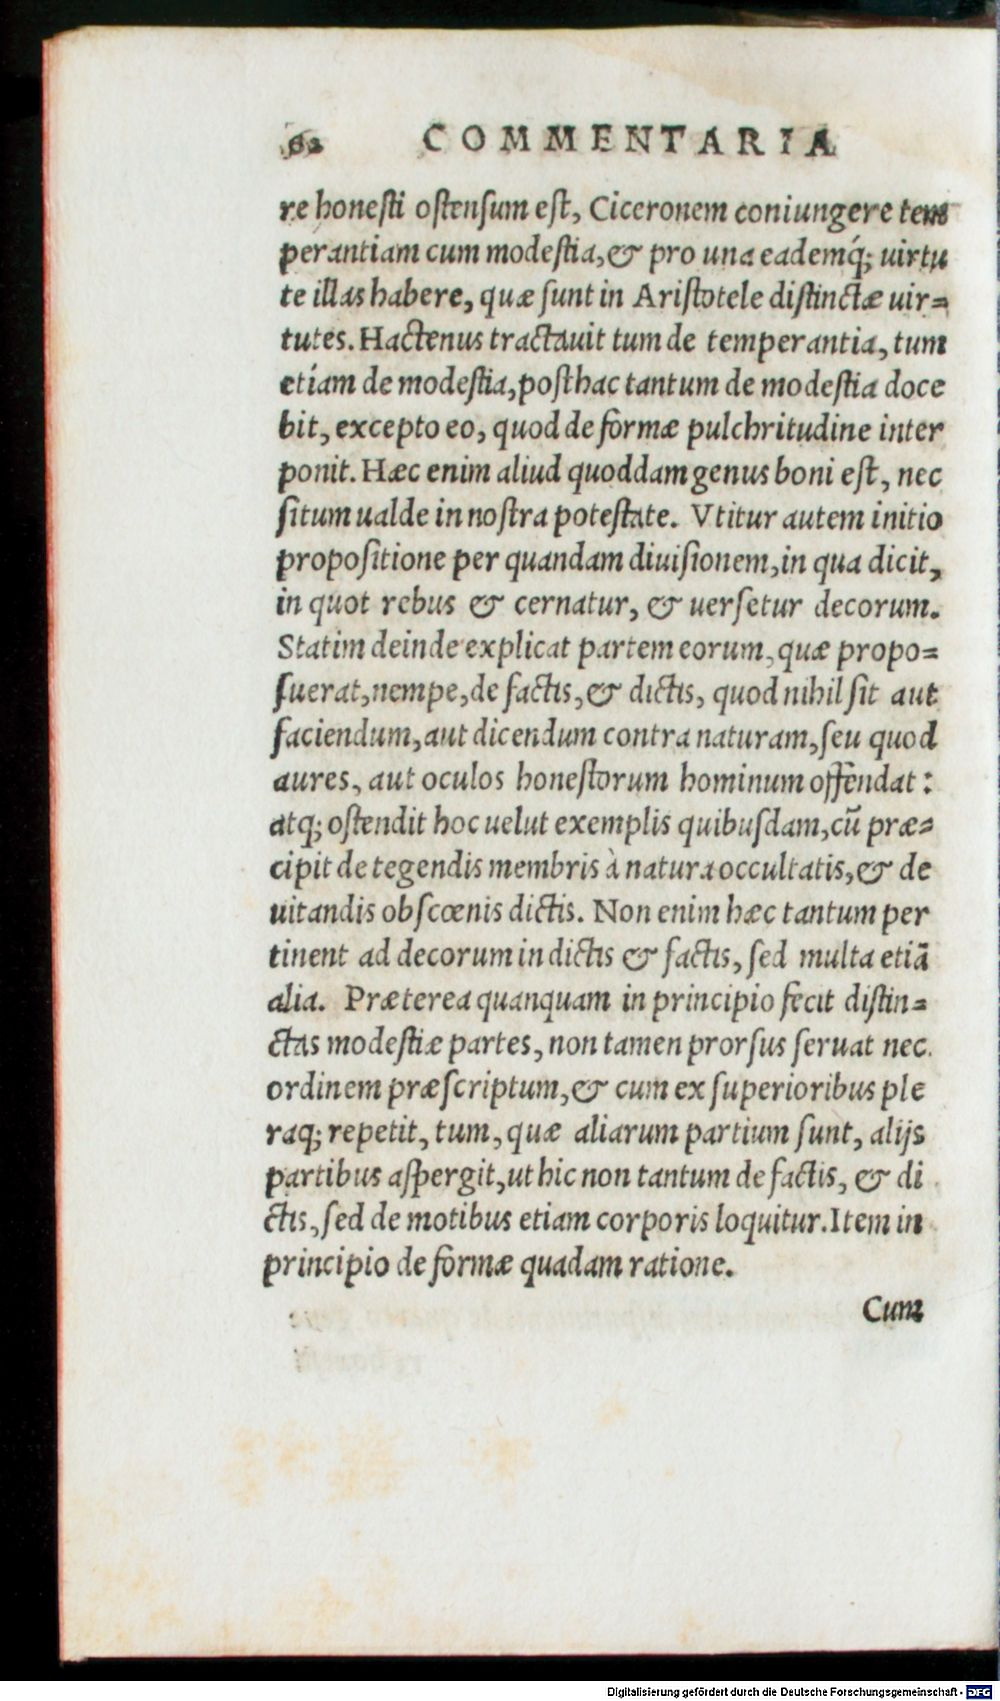 62 COMMENTARIA
re honesti ostensum est, Ciceronem coniungere tem
perantiam cum modestia, & pro una eademq́; uirtu
te illas habere, quæ sunt in Aristotele distinctæ uir=
tutes. Hactenus tractauit tum de temperantia, tum
etíam de modestia, posthac tantum de modestia doce
bit, excepto eo, quod de formæ pulchritudine inter
ponit. Hæc enim aliud quoddam genus boni est, nec
situm ualde in nostra potestate. Vtitur autem initio
propositione per quandam diuisionem, in qua dicit,
in quot rebus & cernatur, & uersetur decorum.
Statim deinde explicat partem eorum, quæ propo=
suerat, nempe, de factis, & dictis, quod nihil sit aut
faciendum, aut dicendum contra naturam, seu quod
aures, aut oculos honestorum hominum offendat:
atq; ostendit hoc uelut exemplis quibusdam, cū præ=
cipit de tegendis membris à natura occultatis, & de
uitandis obscœnis dictis. Non enim hæc tantum per
tinent ad decorum in dictis & factis, sed multa etiā
alia. Præterea quanquam in principio fecit distin=
ctas modestiæ partes, non tamen prorsus seruat nec
ordinem præscriptum, & cum ex superioribus ple
raq; repetit, tum, quæ aliarum partium sunt, alijs
partibus aspergit, ut hic non tantum de factis, & di
ctis, sed de motibus etiam corporis loquitur. Item in
principio de formæ quadam ratione.
Cum
Digitalisierung gefördert durch die Deutsche Forschungsgemeinschaft - DFG